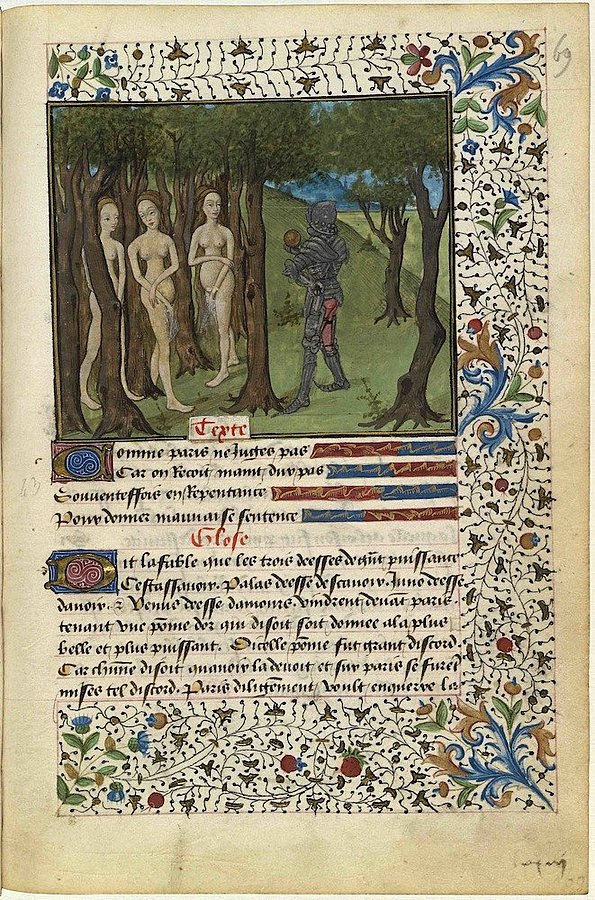 69
Texte
Comme paris ne Juges pas
Car on Recoit maint dur pas
Souventeffois en Repentance
Pour donner mauvaise sentence
Glose
Dit la fable que les trois deesses de gñt puissance
Cestassavoir. Palas deesse de scavoir. Juno deesse
davoir. & Venus deesse damours vindrent devãt paris.
tenant vne põme dor qui disoit soit donnee a la plus
belle et plus puissant. Dicelle põme fut grant discord
Car chũne disoit quavoir la devoit et sur paris se furẽt
mises tel discord. Paris diligemment voult enquerre la